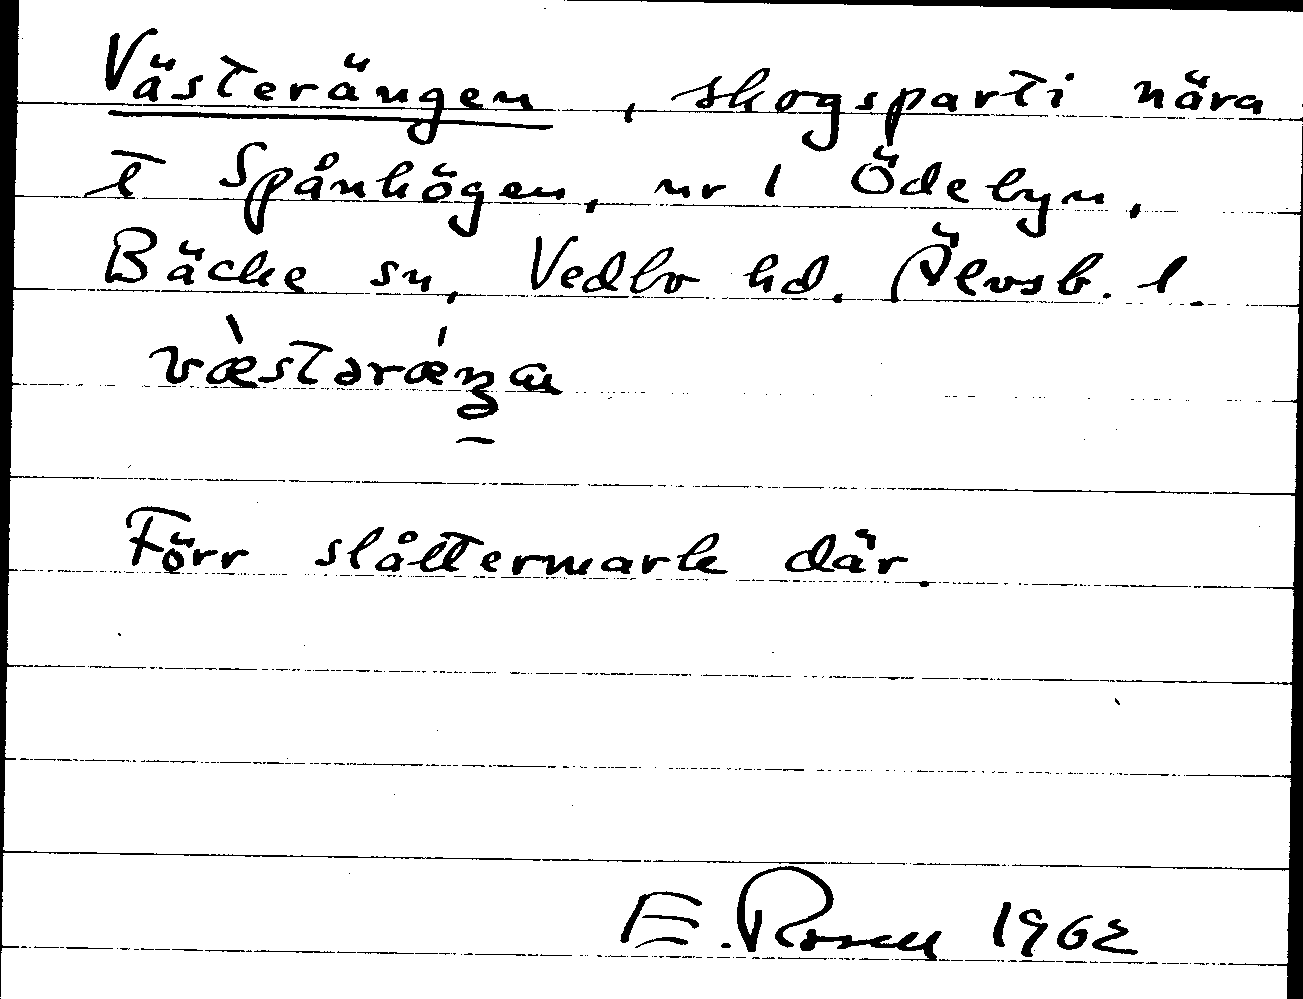 Västerängen, skogsparti nära
t Spånhögen, nr 1 Ödebyn,
Bäcke sn, Vedbo hd. Älvsb. l.
Förr slåttermark där.
E. Rosell 1962